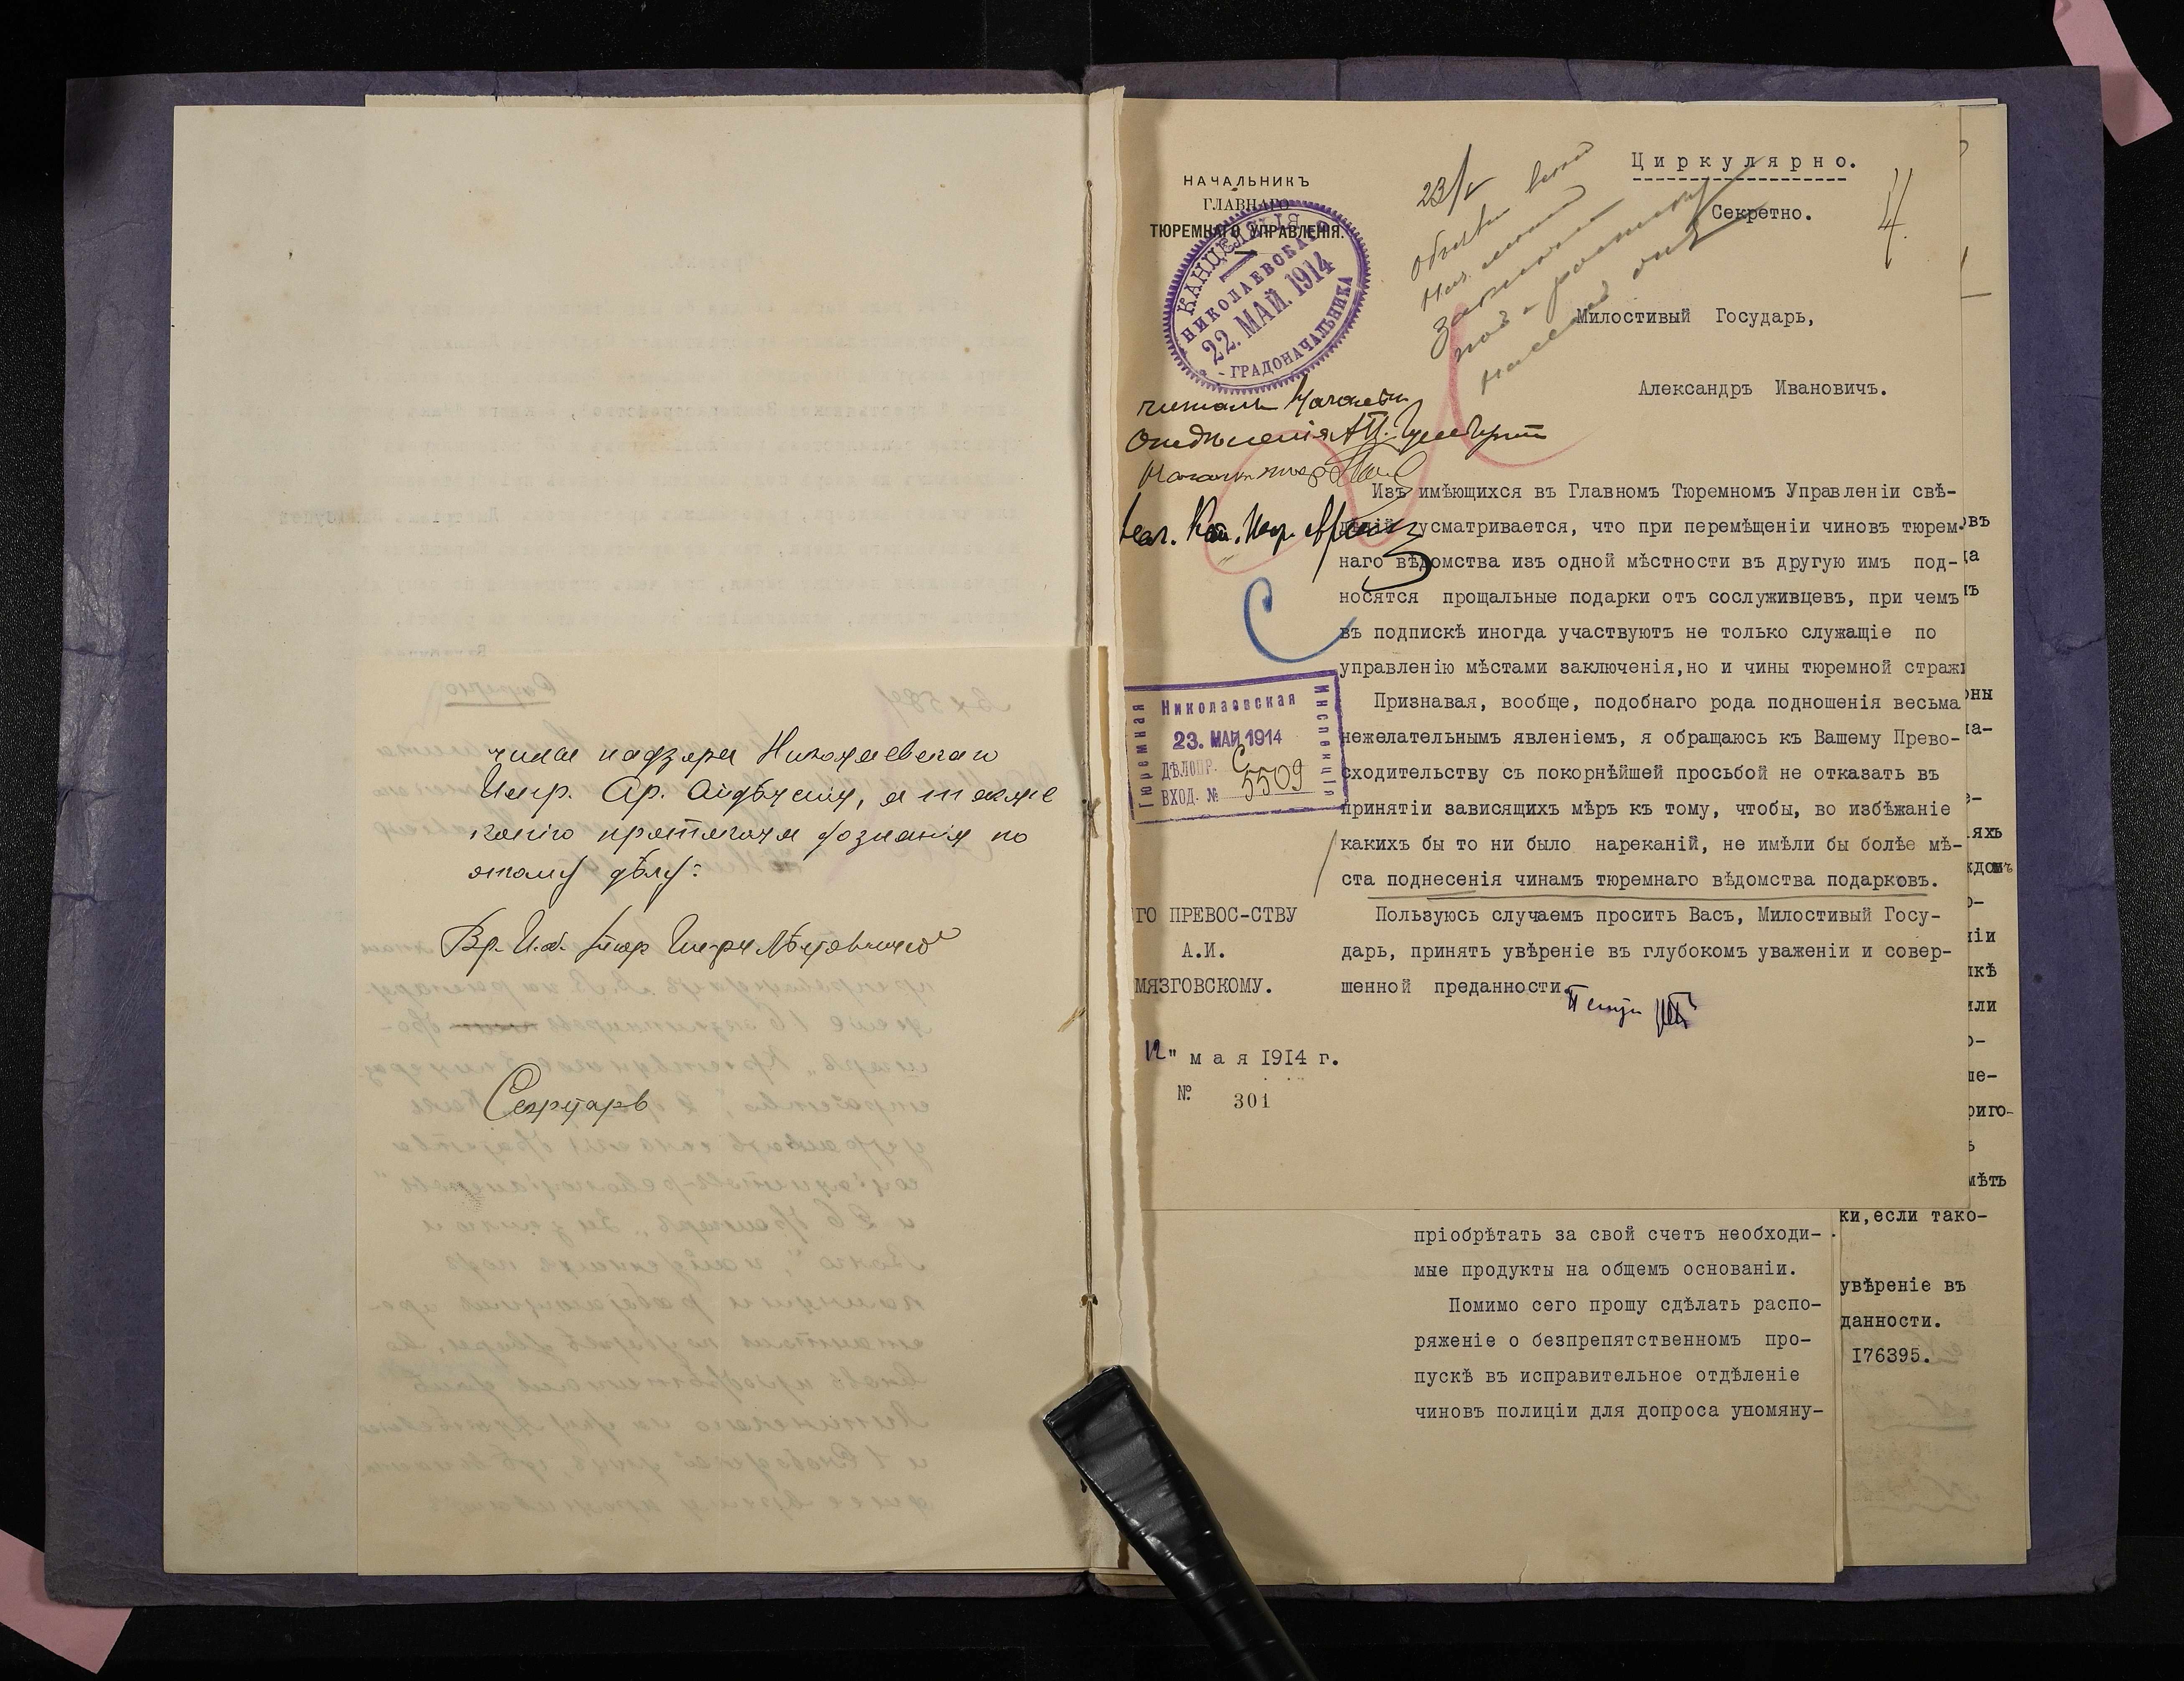 числе надзора Николаевскаго
Испр. Ар. Отдѣленія, а также
копію протокола дознанія по
этому дѣлу.
Вр. И.д. Тюр. Инсп.
Секретарь
Циркулярно.
Секретно.
4.
НАЧАЛЬНИКЪ
ГЛАВНАГО
ТЮРЕМНАГО УПРАВЛЕНІЯ.
КАНЦЕЛЯРІЯ
НИКОЛАЕВСКАГО
22. МАЙ. 1914
ГРАДОНАЧАЛЬНИКА
23/V
Милостивый Государь,
Александръ Ивановичъ.
читалъ Начальн.
Отдѣленія
Изъ имѣющихся въ Главномъ Тюремномъ Управленіи свѣ-
дѣній усматривается, что при перемѣщеніи чиновъ тюрем-
наго вѣдомства изъ одной мѣстности въ другую имъ под-
носятся прощальные подарки отъ сослуживцевъ, при чемъ
въ подпискѣ иногда участвуютъ не только служащіе по
управленію мѣстами заключенія,но и чины тюремной стражи
Признавая, вообще, подобнаго рода подношенія весьма
нежелательнымъ явленіемъ, я обращаюсь къ Вашему Прево-
сходительству съ покорнѣйшей просьбой не отказать въ
принятіи зависящихъ мѣръ къ тому, чтобы, во избѣжаніе
какихъ бы то ни было нареканій, не имѣли бы болѣе мѣ-
ста поднесенія чинамъ тюремнаго вѣдомства подарковъ.
Пользуюсь случаемъ просить Васъ, Милостивый Госу-
дарь, принять увѣреніе въ глубокомъ уваженіи и совер-
шенной преданности.
Николаевская
Тюремная
Инспекція
23. МАЙ 1914
ДѢЛОПР. С
ВХОД. № 5509
ГО ПРЕВОС-СТВУ
А.И.
МЯЗГОВСКОМУ.
12" мая 1914 г.
№ 301
пріобрѣтать за свой счетъ необходи-
мые продукты на общемъ основаніи.
Помимо сего прошу сдѣлать распо-
ряженіе о безпрепятственномъ про-
пускѣ въ исправительное отдѣленіе
чиновъ полиціи для допроса упомяну-
ки,если тако-
увѣреніе въ
данности.
176395.